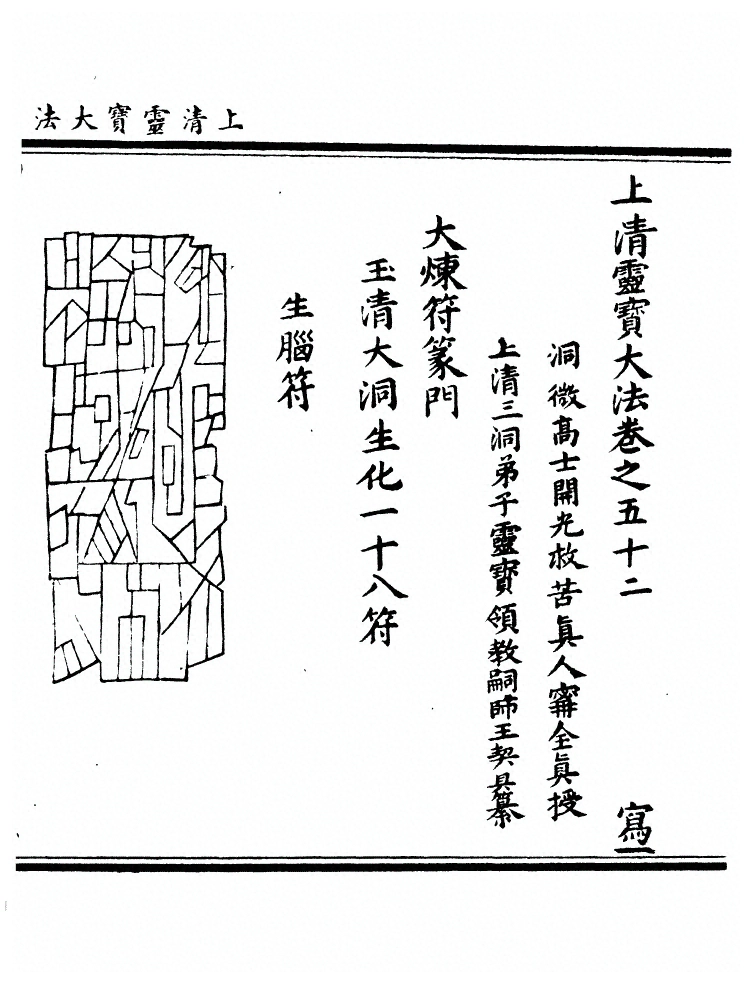 上清靈寶大法
上清靈寶大法卷之五十二
寫一
洞微高士開光救苦眞人甯全眞授
上清三洞弟子靈寶領教嗣師王契眞纂
大煉符篆門
玉清大洞生化一十八符
生腦符